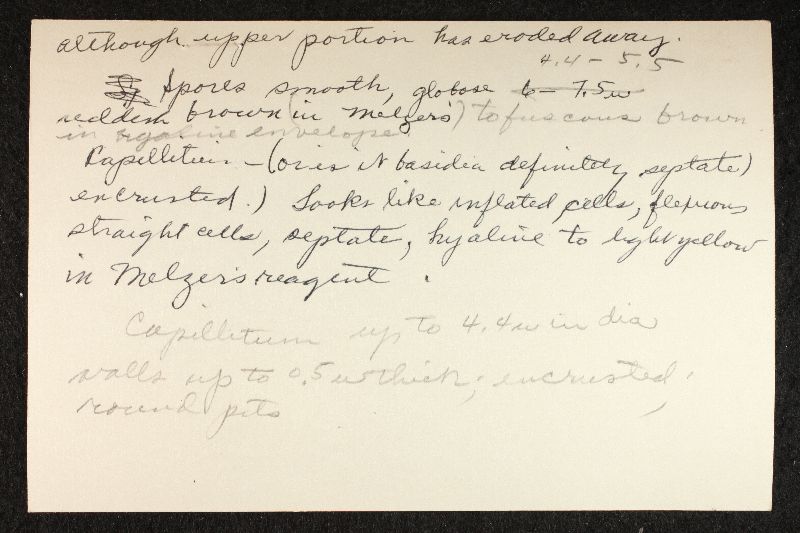 although upper portion has eroded away.
4.4 - 5.5
Spores smooth, globose 6 - 7.5u
reddish brown (in Melzers) to fuscous brown
in hyaline envelope
Capillitium - (or is it basidia definitely septate)
encrusted.) Looks like inflated cells, flexuous
straight cells, septate, hyaline to light yellow
in Melzer's reagent.
Capillitium up to 4.4u in dia
walls up to 0.5u thick; encrusted,
round pits